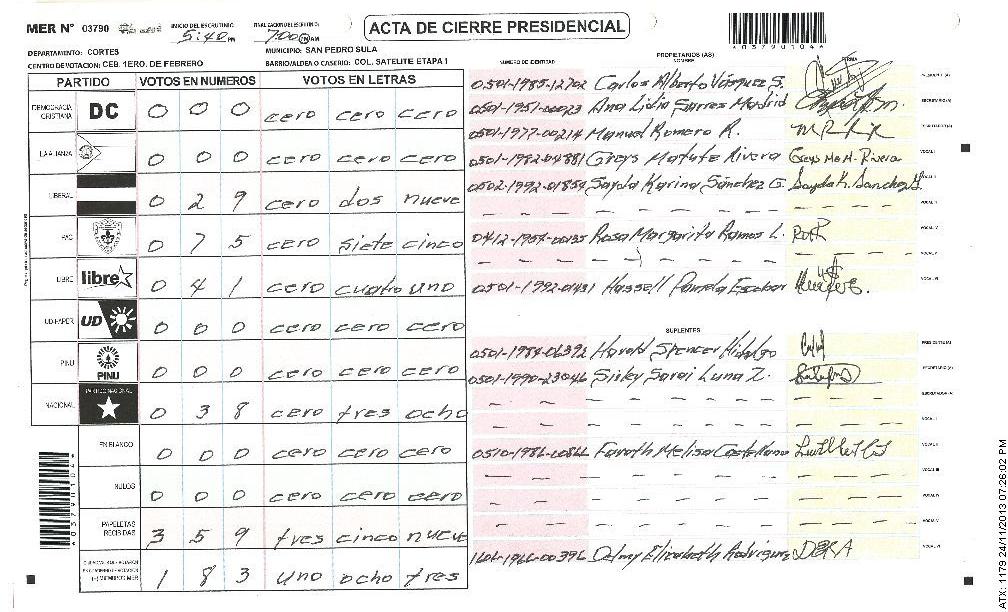 MER N° 03790
INICIO DEL ESCRUTINIO: 5:40 PM
FINALIZACION DEL ESCRUTINIO: 7:00 PM AM
ACTA DE CIERRE PRESIDENCIAL
*03790104*
DEPARTAMENTO: CORTES
MUNICIPIO: SAN PEDRO SULA
CENTRO DE VOTACION: CEB. 1ERO. DE FEBRERO
BARRIO/ALDEA O CASERIO: COL. SATELITE ETAPA I
PARTIDO VOTOS EN NUMEROS VOTOS EN LETRAS
DEMOCRACIA CRISTIANA DC 0 0 0 cero cero cero
LA ALIANZA 0 0 0 cero cero cero
LIBERAL 0 2 9 cero dos nueve
PAC 0 7 5 cero siete cinco
LIBRE libre 0 4 1 cero cuatro uno
UD-FAPER UD 0 0 0 cero cero cero
PINU PINU 0 0 0 cero cero cero
NACIONAL PARTIDO NACIONAL 0 3 8 cero tres ocho
EN BLANCO 0 0 0 cero cero cero
NULOS 0 0 0 cero cero cero
PAPELETAS RECIBIDAS 3 5 9 tres cinco nueve
(+) MIEMBROS MER 1 8 3 uno ocho tres
NUMERO DE IDENTIDAD PROPIETARIOS (AS) NOMBRE FIRMA
0501-1985-12702 Carlos Alberto Vásquez S. PRESIDENTE (A)
0501-1951-00023 Ana Lidia Sarres Madrid SECRETARIO(A)
0501-1977-00214 Manuel Romero R. ESCRUTADOR(A)
0501-1982-04881 Greys Matute Rivera Greys Ma M. Rivera VOCAL I
0502-1992-01854 Sayda Karina Sánchez G. Sayda K. Sanchez G. VOCAL II
VOCAL III
0412-1954-00135 Rosa Margarita Ramos L. VOCAL IV
VOCAL V
0501-1992-01431 Hassell Pamela Escobar VOCAL VI
SUPLENTES
0501-1984-06392 Harold Spencer Hidalgo PRESIDENTE(A)
0501-1990-23046 Sirley Sarai Luna Z. SECRETARIO (A)
ESCRUTADOR (A)
VOCAL I
0510-1986-00866 Melisa Castellano VOCAL II
VOCAL III
VOCAL IV
VOCAL V
Delmy Elizabeth Rodriguez DERA VOCAL VI
*03790104*
ATX: 1179 24/11/2013 07:26:02 PM